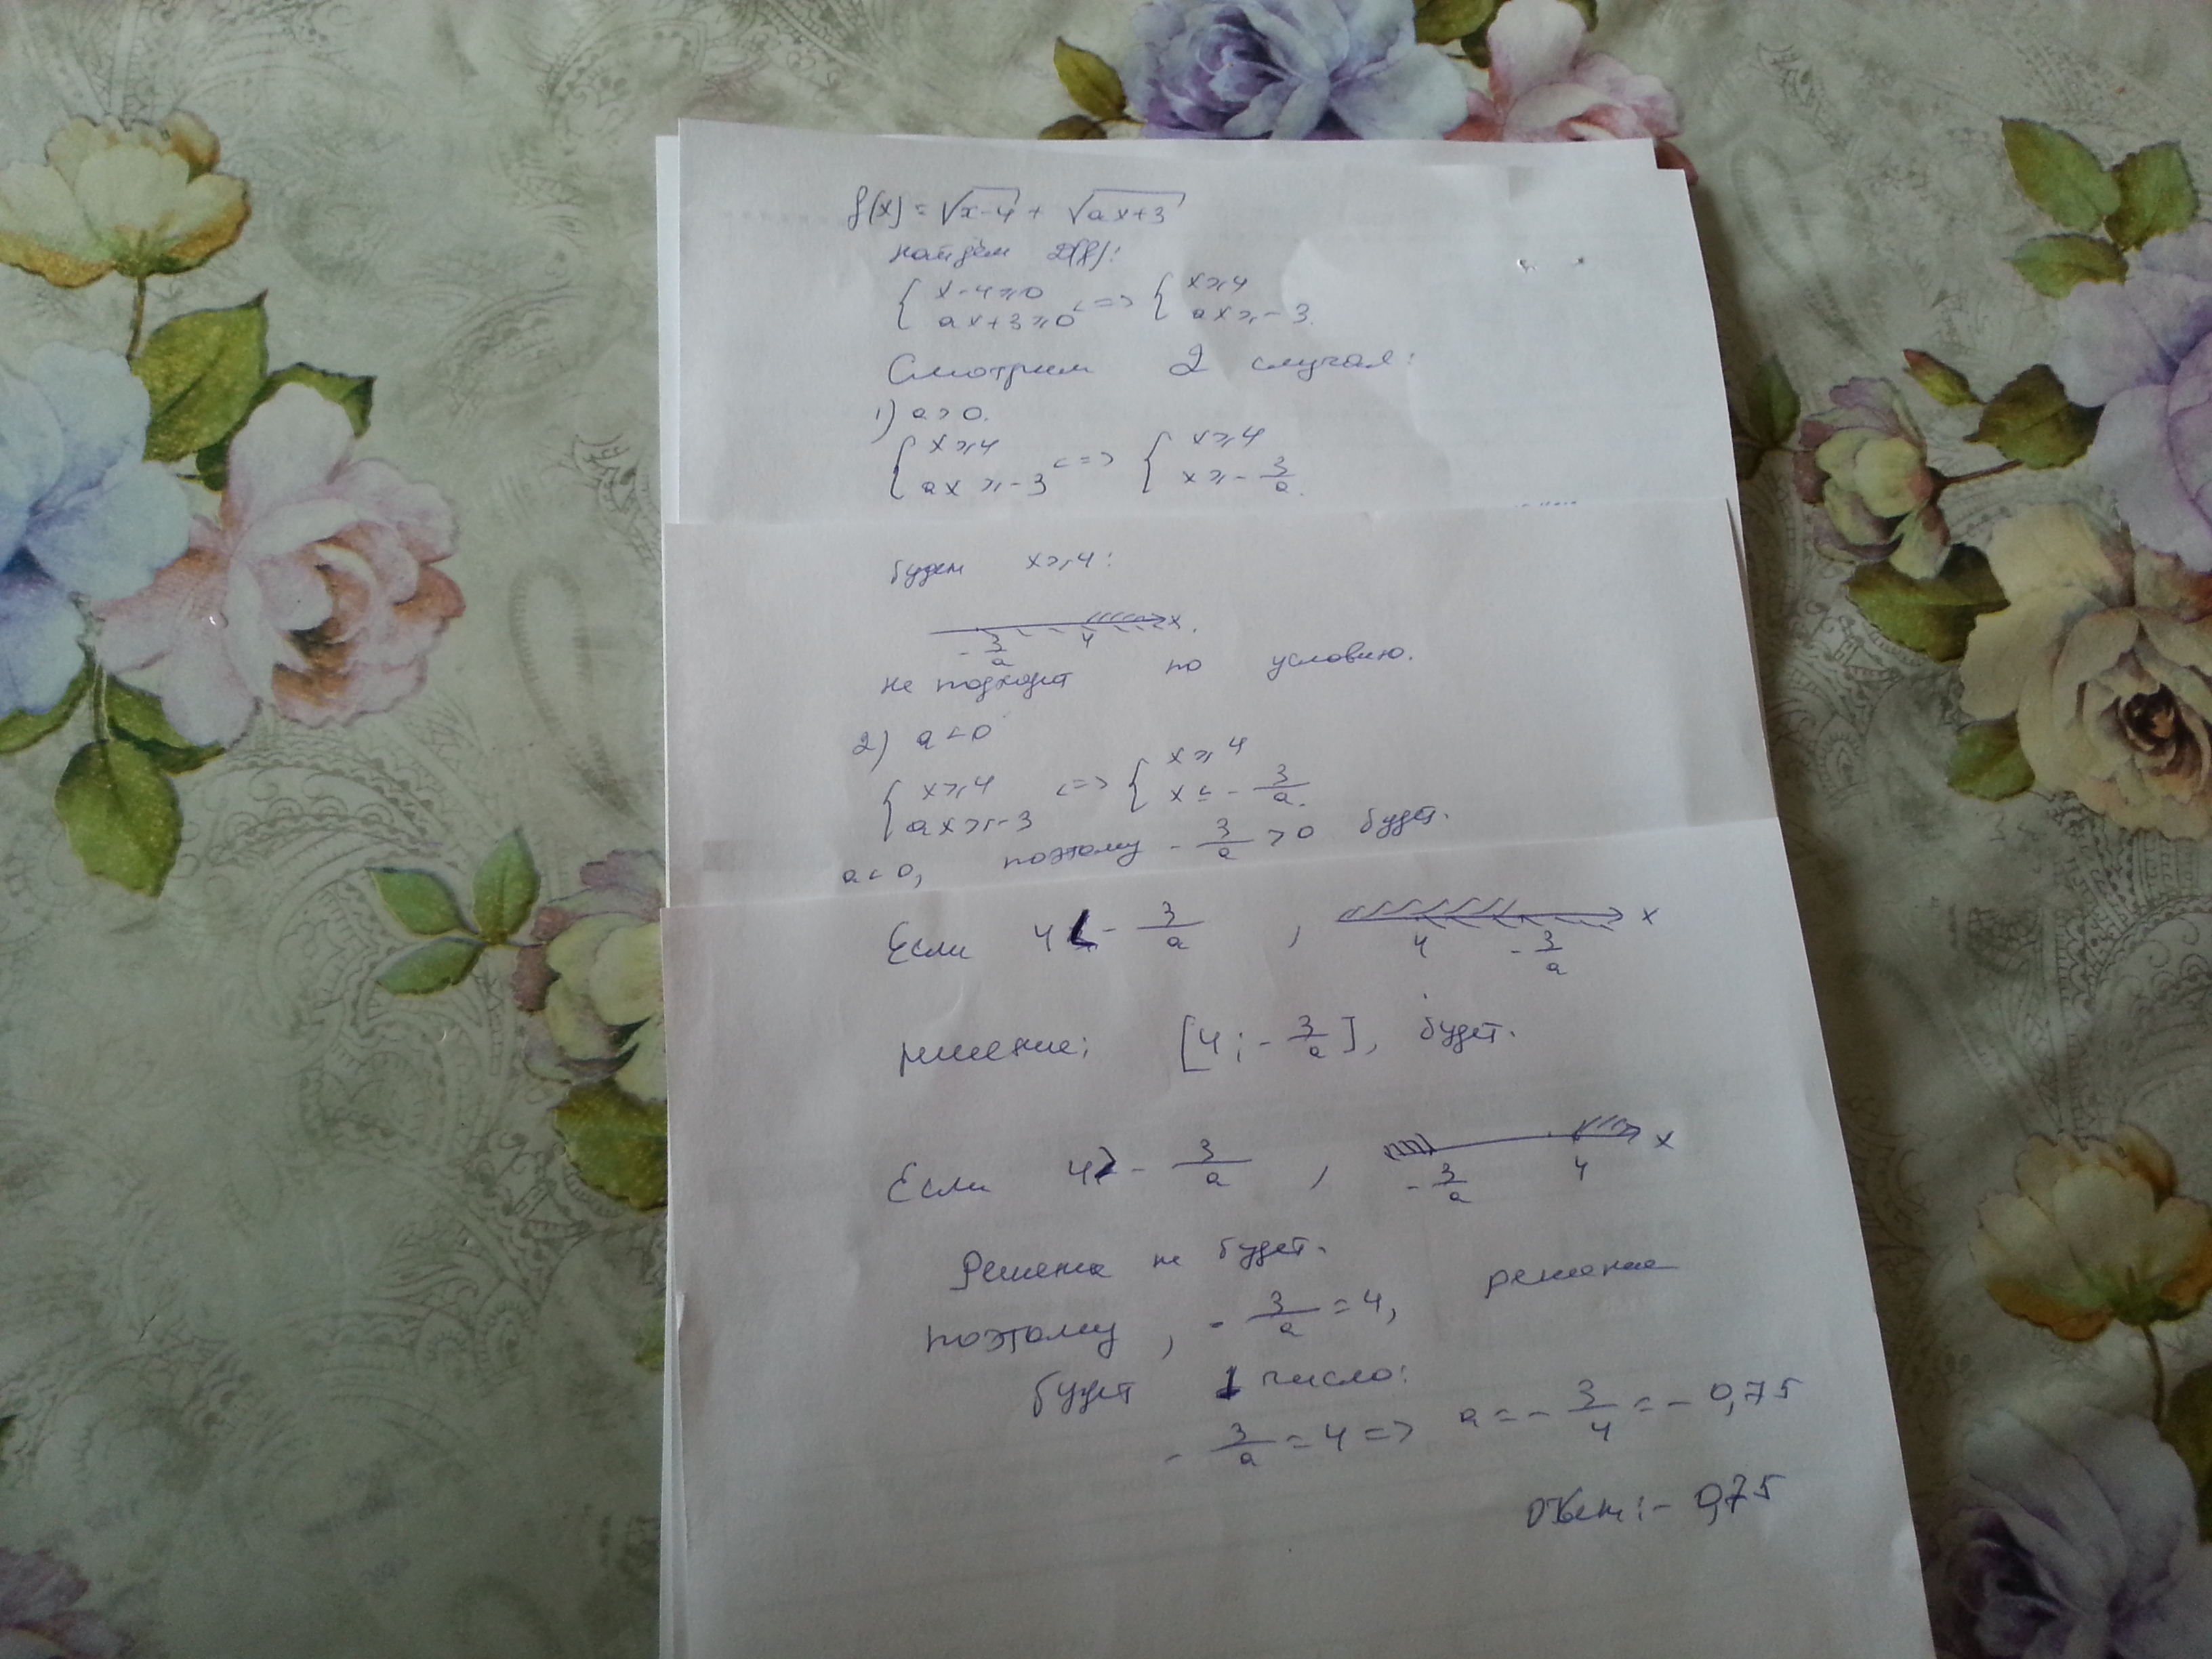 f(x) = √x-4 + √ax+3
найдём D(f):
{ x-4≥0 ax+3≥0 <=> { x≥4 ax≥-3.
Смотрим 2 случая:
1) a>0.
{ x≥4 ax≥-3 <=> { x≥4 x≥-3/a.
будем x≥4:
-3/a 4 x.
не подходит по условию.
2) a<0
{ x≥4 ax≥-3 <=> { x≥4 x≤-3/a.
a<0, поэтому -3/a>0 будет.
Если 4<-3/a, 4 -3/a x
решение: [4;-3/a], будет.
Если 4>-3/a, -3/a 4 x
Решения не будет.
поэтому, -3/a=4, решение
будет 1 число:
-3/a=4 => a=-3/4=-0,75
Ответ: -0,75